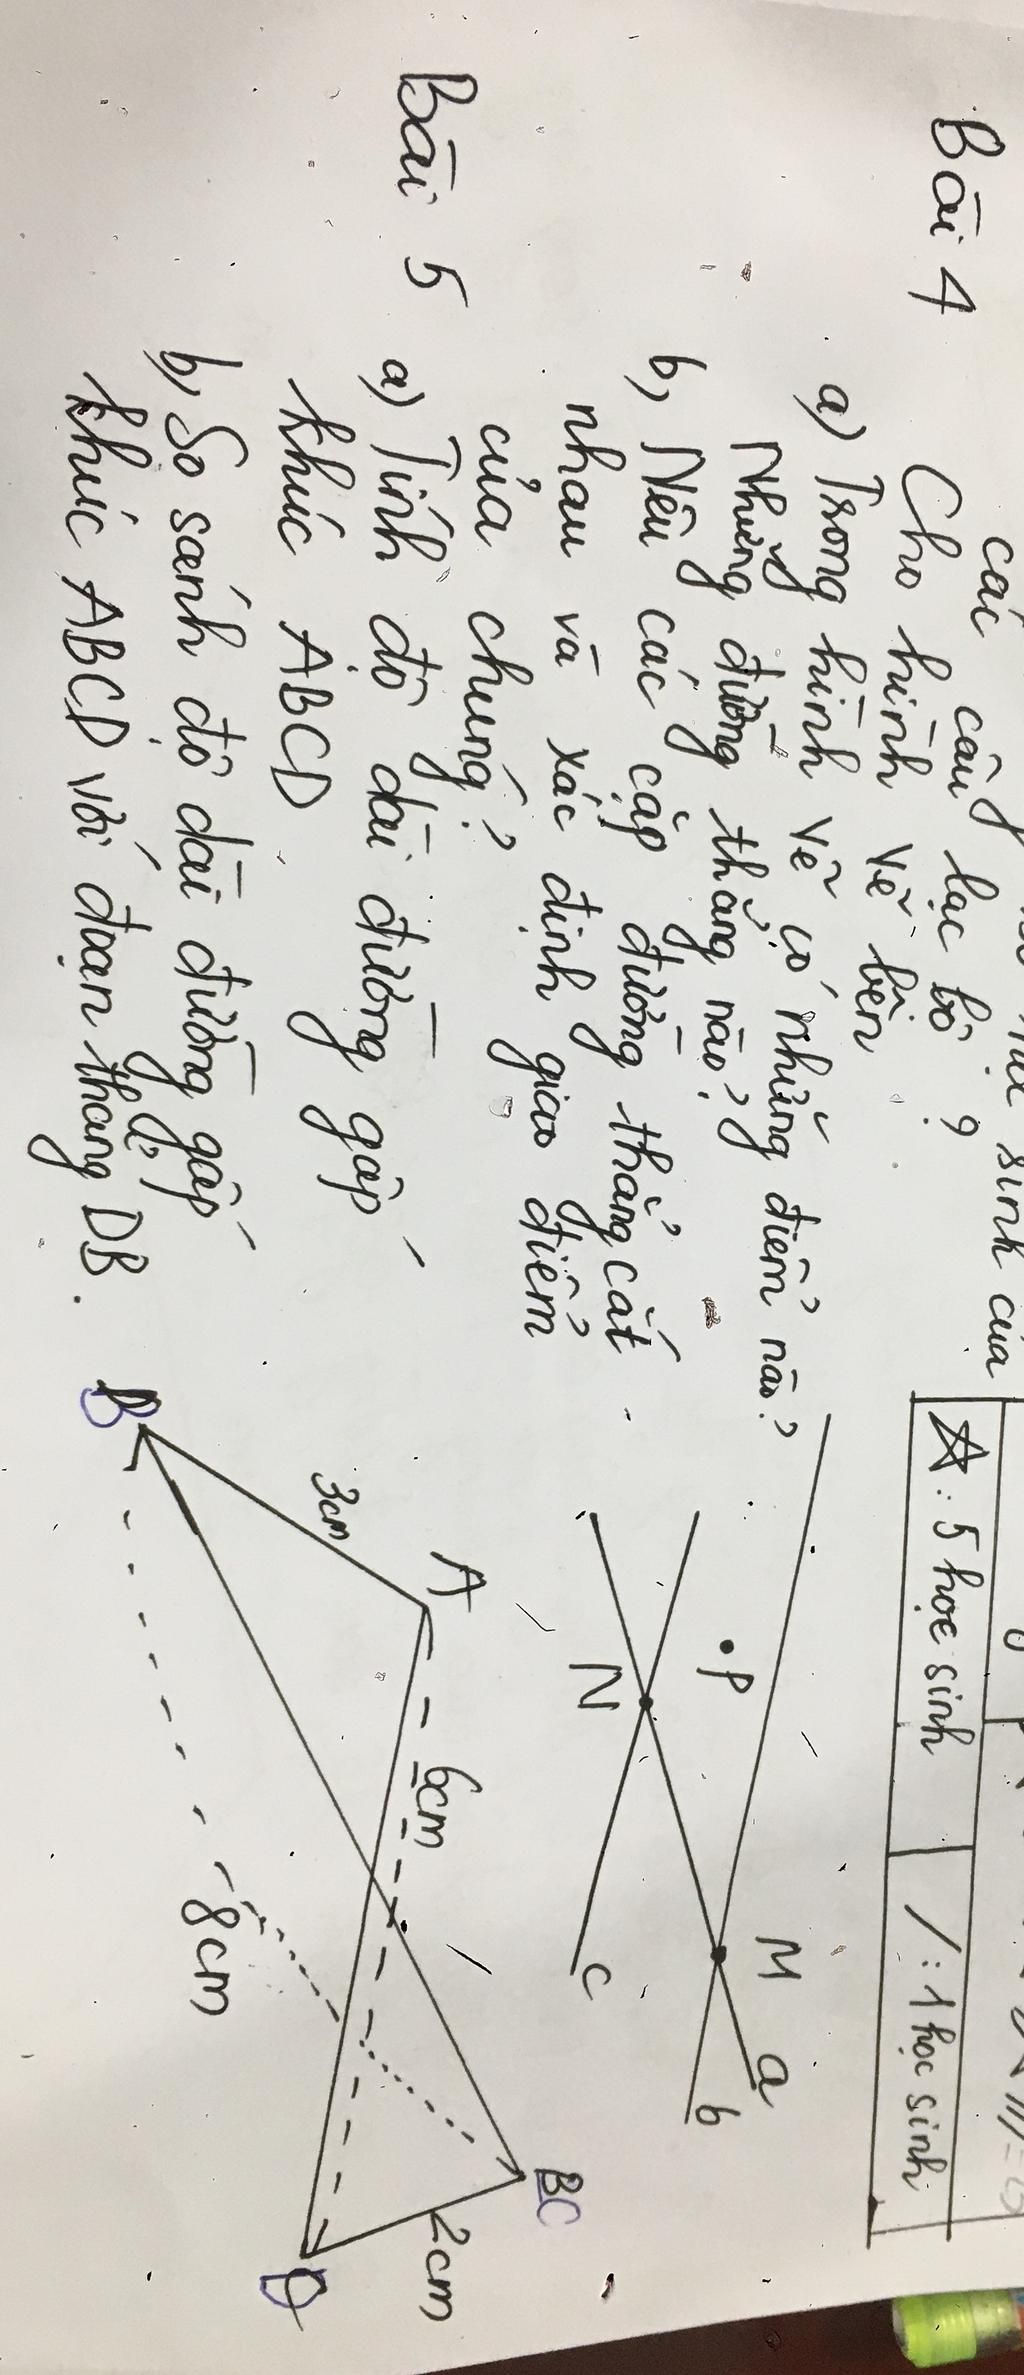 các câu lạc bộ ?
sinh của
☆ : 5 học sinh
/ : 1 học sinh
Bài 4
Cho hình vẽ bên
a) Trong hình vẽ có những điểm nào?
Những đường thẳng nào?
b, Nêu các cặp đường thẳng cắt
nhau và xác định giao điểm
của chúng?
P
M
a
b
N
c
Bài 5
a) Tính độ dài đường gấp
khúc ABCD
b, So sánh độ dài đường gấp
khúc ABCD với đoạn thẳng DB.
A
6cm
3cm
B
C
2cm
D
8cm